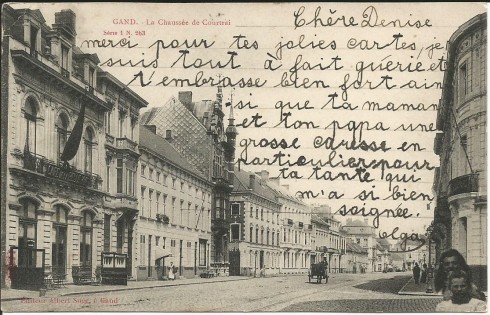 GAND. - La Chaussée de Courtrai
Série 1 N. 263
Chère Denise
merci pour tes jolies cartes, je
suis tout à fait guérie et
t'embrasse bien fort ain
si que ta maman
et ton papa une
grosse caresse en
particulier pour
ta tante qui
m'a si bien
soignée.
Olga
Editeur Albert Sugg, à Gand